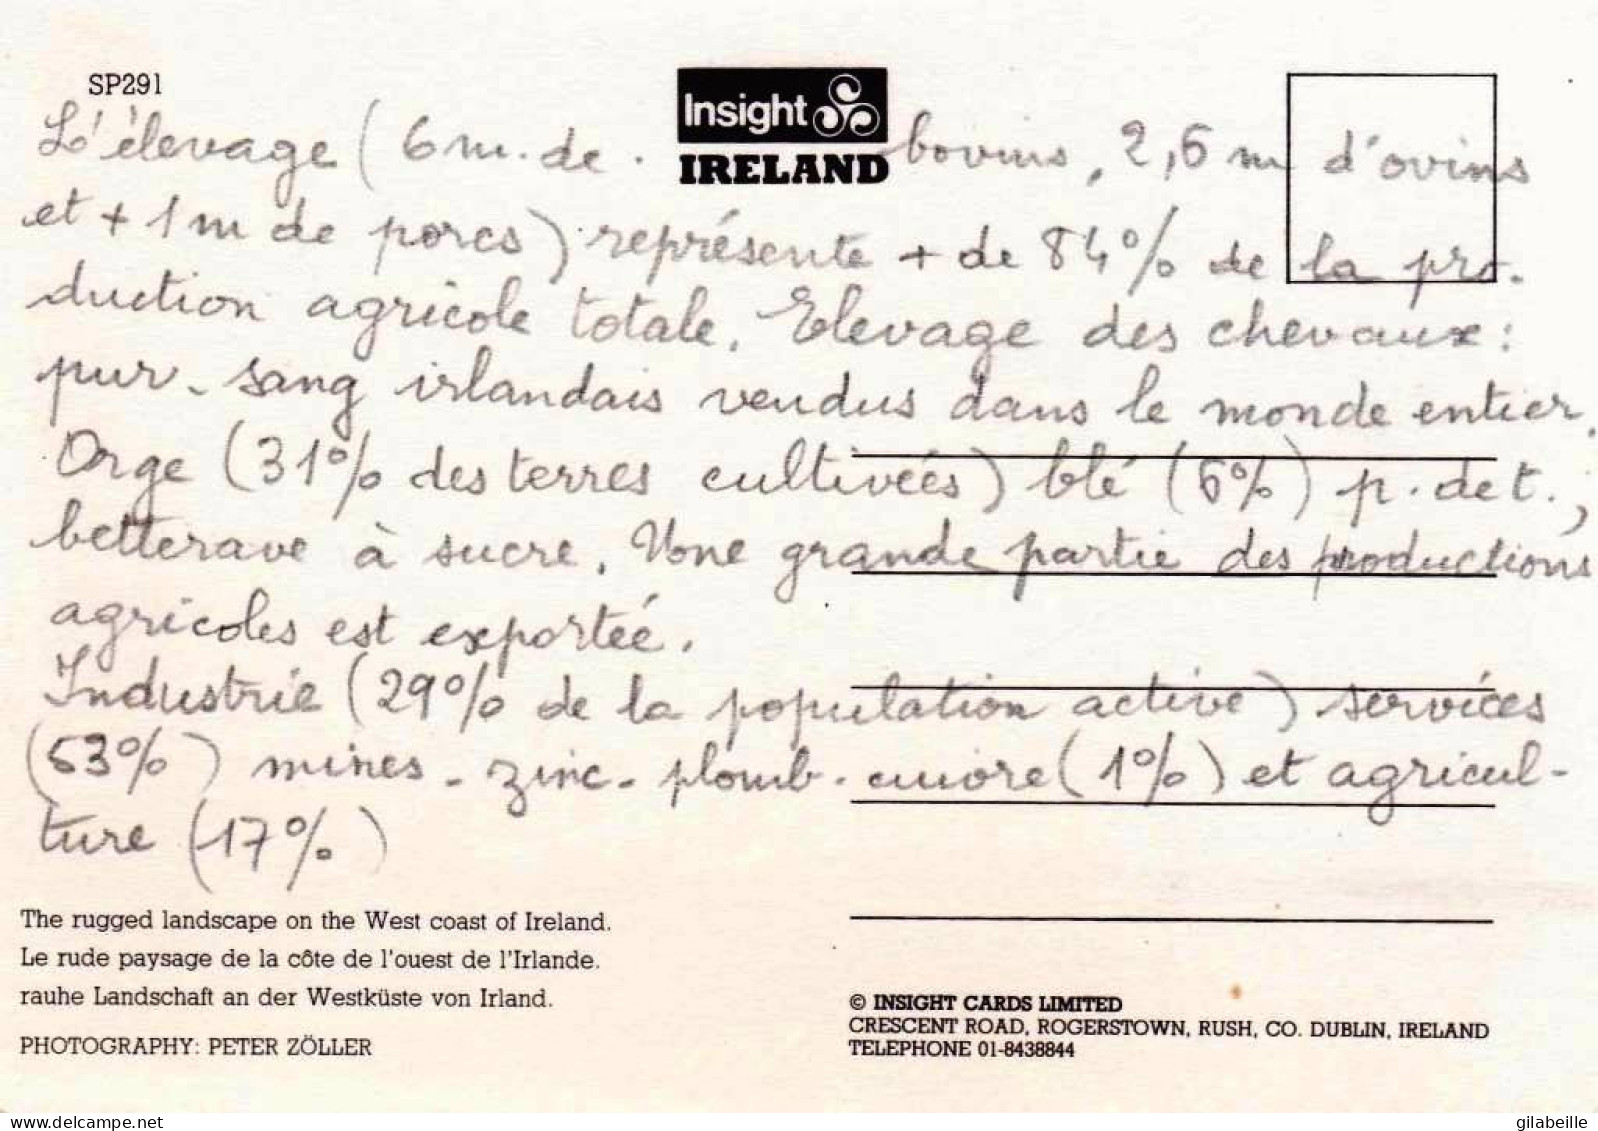 SP291
Insight
IRELAND
L'élevage ( 6 m. de . bovins, 2,6 m d'ovins
et + 1 m de porcs) représente + de 84% de la pro-
duction agricole totale. Elevage des chevaux :
pur-sang irlandais vendus dans le monde entier.
Orge (31% des terres cultivéés) blé (6%) p. de t. ;
betterave à sucre. Une grande partie des productions
agricoles est exportéé.
Industrie (29% de la population active) services
(53%) mines - zinc - plomb - cuivre (1%) et agricul-
ture (17%)
The rugged landscape on the West coast of Ireland.
Le rude paysage de la côte de l'ouest de l'Irlande.
rauhe Landschaft an der Westküste von Irland.
PHOTOGRAPHY: PETER ZÖLLER
© INSIGHT CARDS LIMITED
CRESCENT ROAD, ROGERSTOWN, RUSH, CO. DUBLIN, IRELAND
TELEPHONE 01-8438844
www.delcampe.net
gilabeille